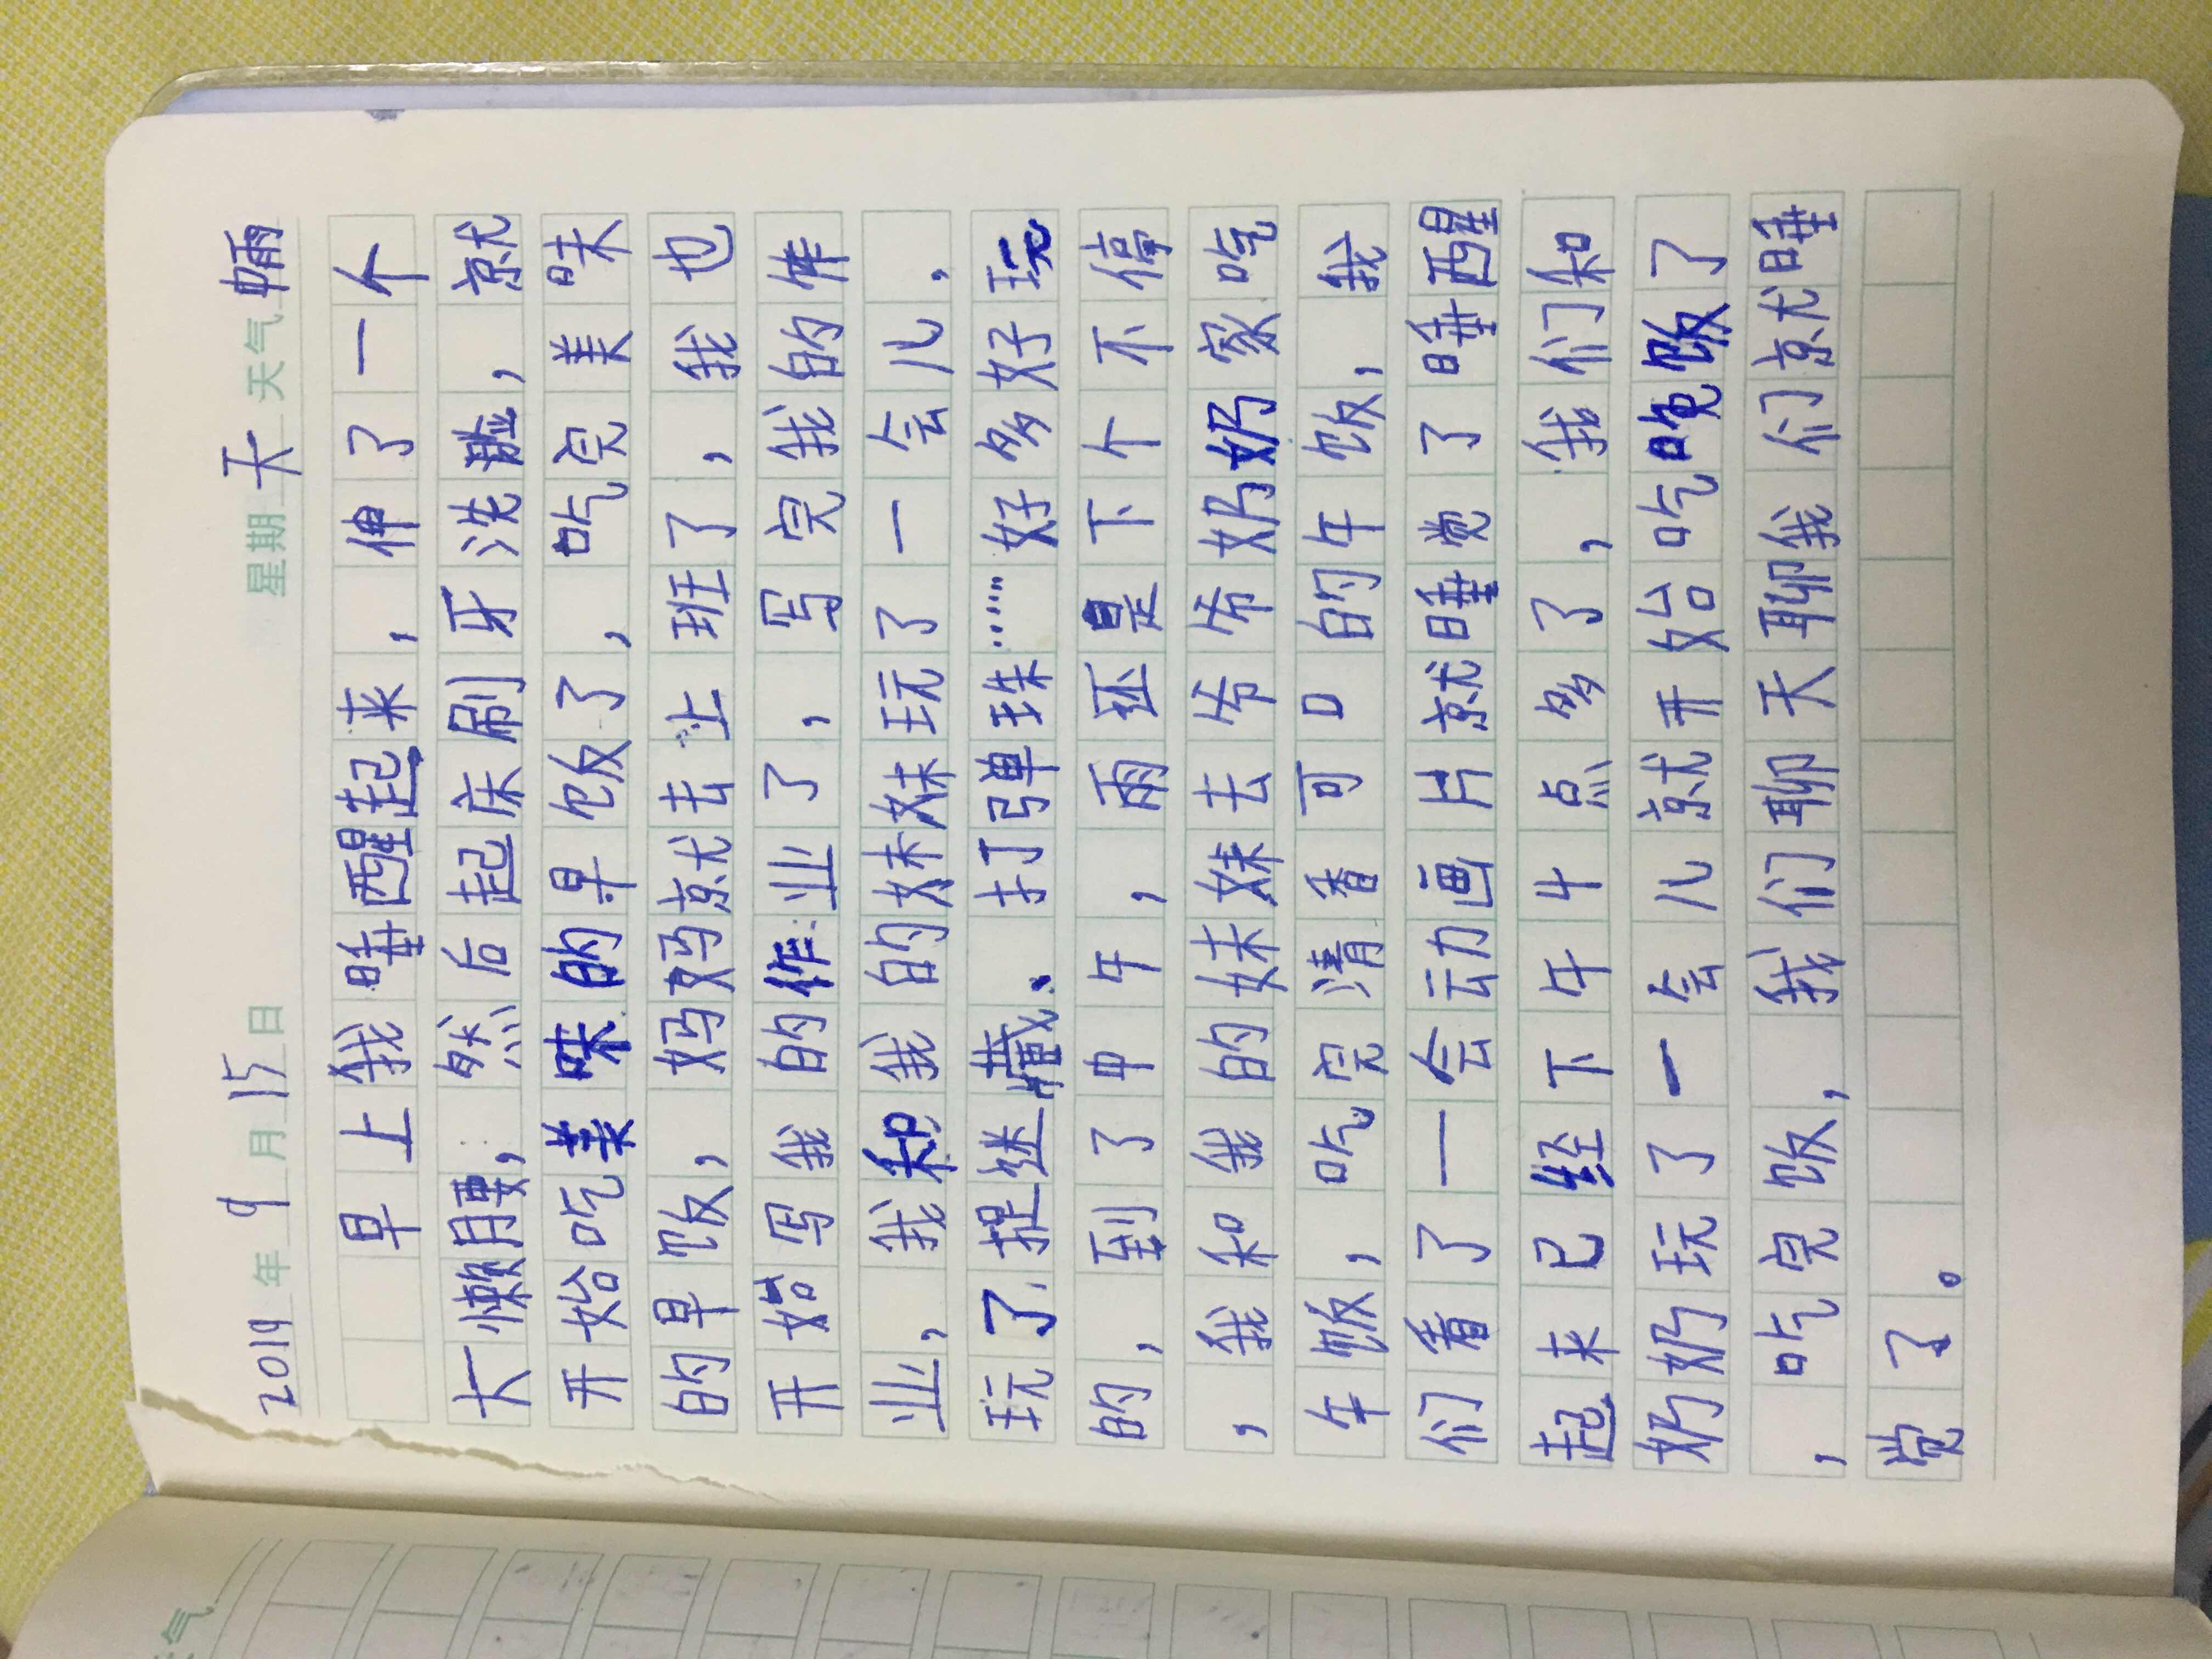 2019年9月15日 星期天 天气中雨
早上我睡醒起来，伸了一个
大懒腰，然后起床刷牙洗脸，就
开始吃美味的早饭了，吃完美味
的早饭，妈妈就去上班了，我也
开始写我的作业了，写完我的作
业，我和我的妹妹玩了一会儿，
玩了捉迷藏、打弹珠……好多好玩
的，到了中午，雨还是下个不停
，我和我的妹妹去爷爷奶奶家吃
午饭，吃完清香可口的午饭，我
们看了一会动画片就睡觉了睡醒
起来已经下午4点多了，我们和
奶奶玩了一会儿就开始吃晚饭了
，吃完饭，我们聊天聊我们就睡
觉了。
气